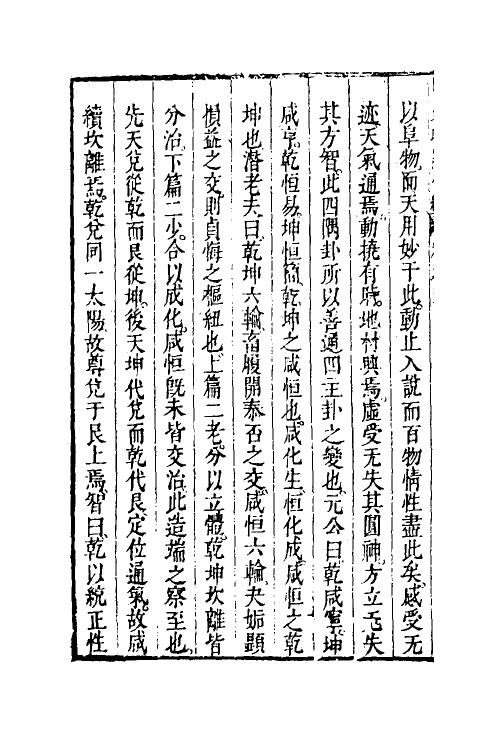 以阜物而天用妙于此動止入說而百物情性盡此矣感受无
迹天氣通焉動撓有時地材興焉虛受无失其圓神方立无失
其方智此四隅卦所以善通四主卦之變也元公曰乾咸寧坤
咸亨乾恒易坤恒簡乾坤之咸恒也咸化生恒化成咸恒之乾
坤也潛老夫曰乾坤六輪畜履開泰否之交咸恒六輪夬姤顯
損益之交則貞悔之樞紐也上篇二老分以立體乾坤坎離皆
分治下篇二少合以成化咸恒旣未皆交治此造端之察至也
先天兌從乾而艮從坤後天坤代兌而乾代艮定位通氣故咸
續坎離焉乾兌同一太陽故尊兌于艮上焉智曰乾以統正性